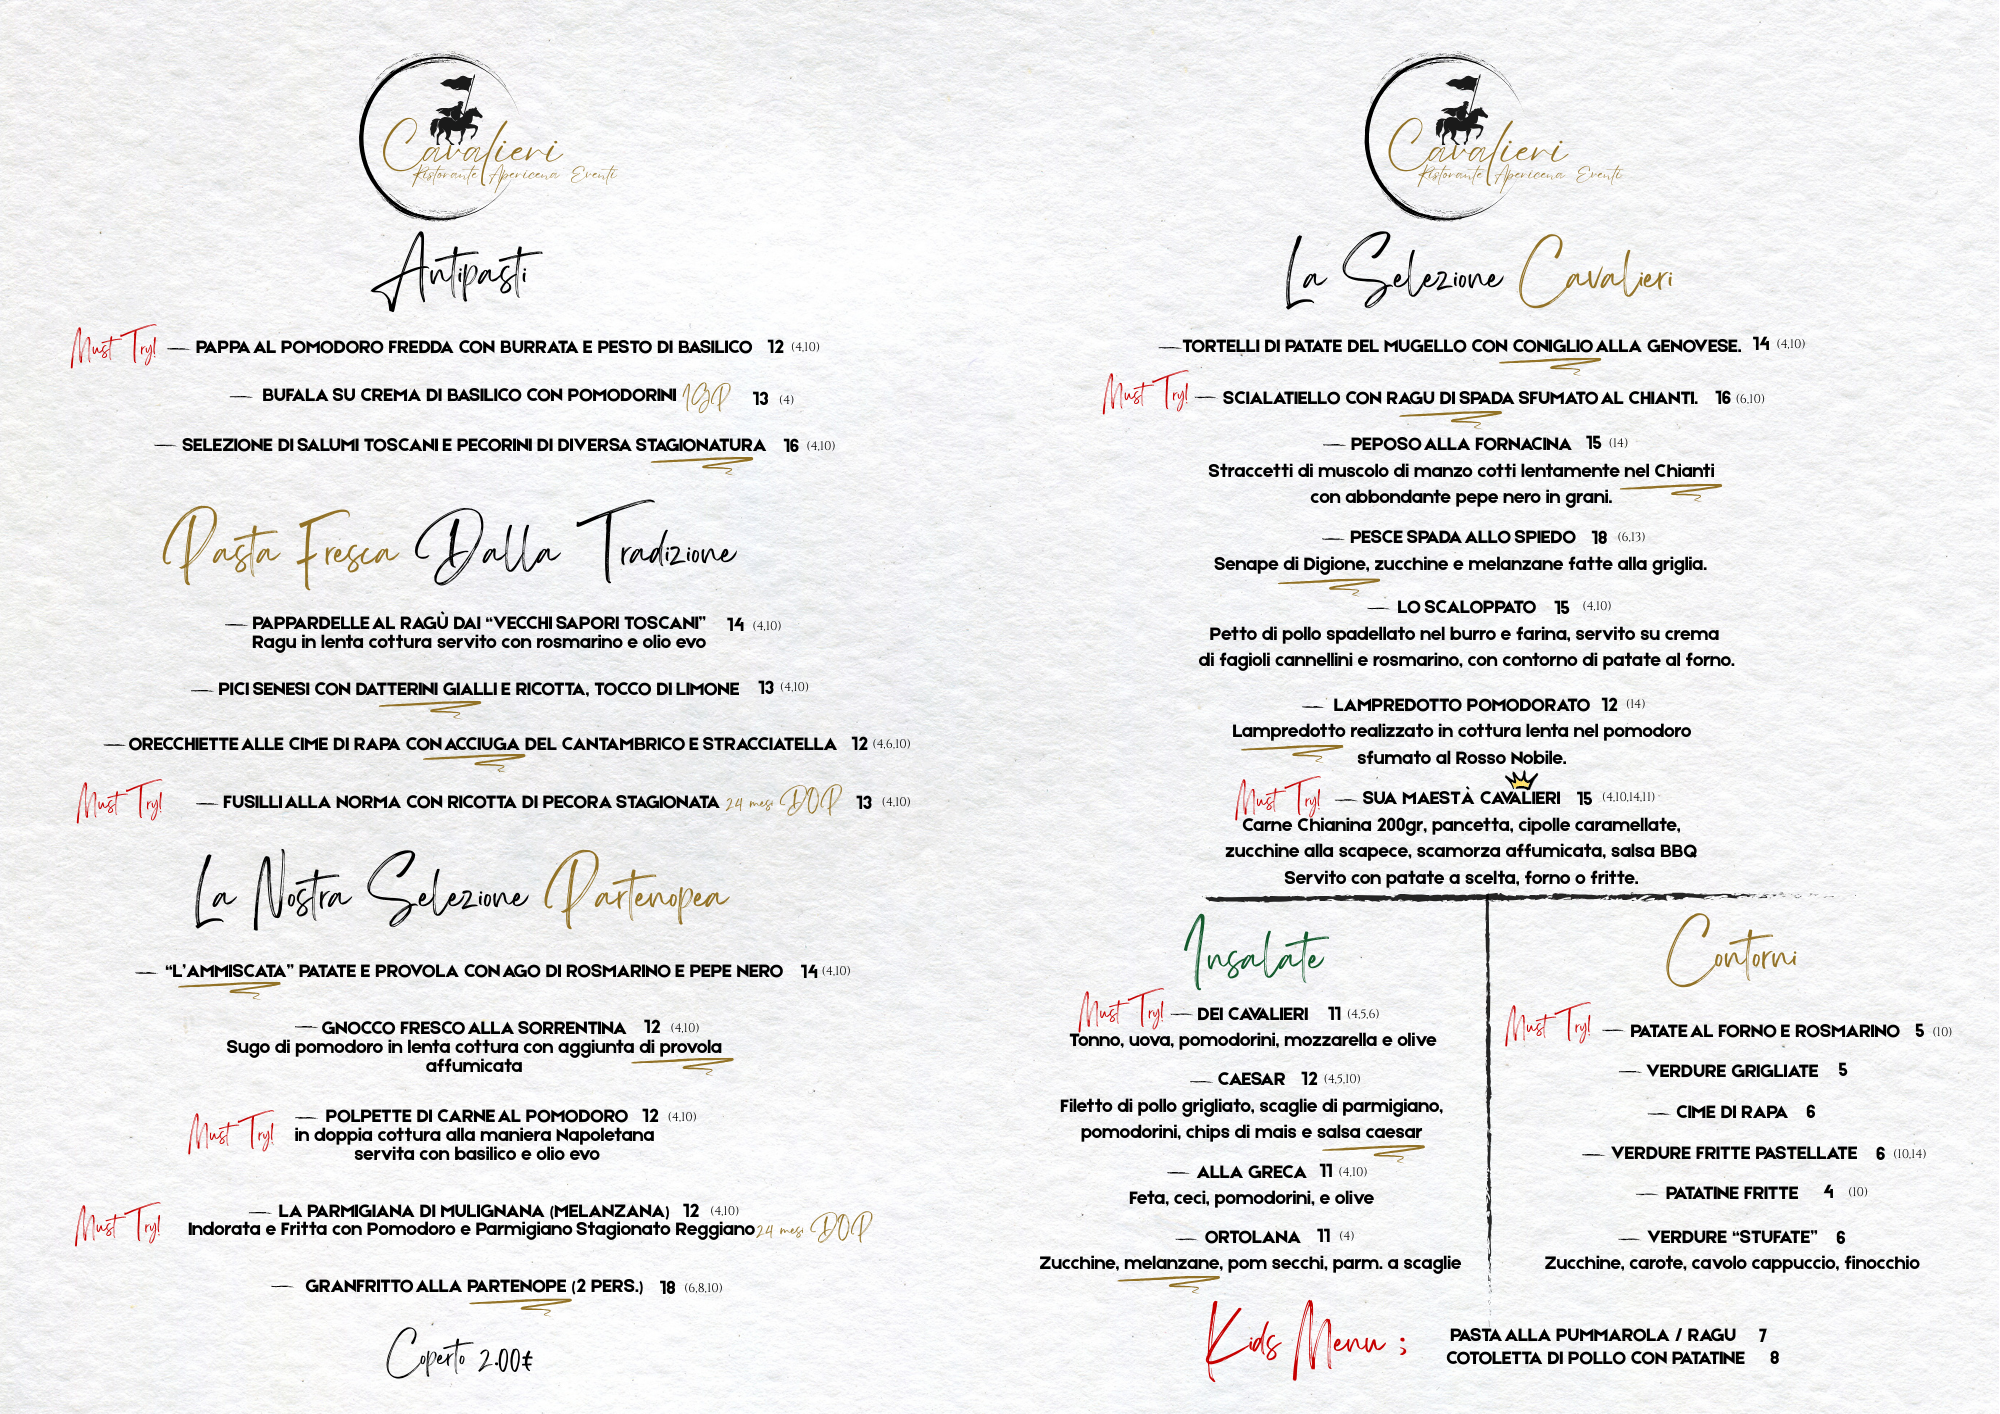 Cavalieri
Ristorante Apericena Eventi
Antipasti
Must Try! — PAPPA AL POMODORO FREDDA CON BURRATA E PESTO DI BASILICO 12 (4,10)
— BUFALA SU CREMA DI BASILICO CON POMODORINI IGP 13 (4)
— SELEZIONE DI SALUMI TOSCANI E PECORINI DI DIVERSA STAGIONATURA 16 (4,10)
Pasta Fresca Dalla Tradizione
— PAPPARDELLE AL RAGÙ DAI “VECCHI SAPORI TOSCANI” 14 (4,10)
Ragu in lenta cottura servito con rosmarino e olio evo
— PICI SENESI CON DATTERINI GIALLI E RICOTTA, TOCCO DI LIMONE 13 (4,10)
— ORECCHIETTE ALLE CIME DI RAPA CON ACCIUGA DEL CANTAMBRICO E STRACCIATELLA 12 (4,6,10)
Must Try! — FUSILLI ALLA NORMA CON RICOTTA DI PECORA STAGIONATA 24 mesi DOP 13 (4,10)
La Nostra Selezione Partenopea
— “L’AMMISCATA” PATATE E PROVOLA CON AGO DI ROSMARINO E PEPE NERO 14 (4,10)
— GNOCCO FRESCO ALLA SORRENTINA 12 (4,10)
Sugo di pomodoro in lenta cottura con aggiunta di provola
affumicata
Must Try! — POLPETTE DI CARNE AL POMODORO 12 (4,10)
in doppia cottura alla maniera Napoletana
servita con basilico e olio evo
Must Try! — LA PARMIGIANA DI MULIGNANA (MELANZANA) 12 (4,10)
Indorata e Fritta con Pomodoro e Parmigiano Stagionato Reggiano 24 mesi DOP
— GRANFRITTO ALLA PARTENOPE (2 PERS.) 18 (6,8,10)
Coperto 2.00€
Cavalieri
Ristorante Apericena Eventi
La Selezione Cavalieri
— TORTELLI DI PATATE DEL MUGELLO CON CONIGLIO ALLA GENOVESE. 14 (4,10)
Must Try! — SCIALATIELLO CON RAGU DI SPADA SFUMATO AL CHIANTI. 16 (6,10)
— PEPOSO ALLA FORNACINA 15 (14)
Straccetti di muscolo di manzo cotti lentamente nel Chianti
con abbondante pepe nero in grani.
— PESCE SPADA ALLO SPIEDO 18 (6,13)
Senape di Digione, zucchine e melanzane fatte alla griglia.
— LO SCALOPPATO 15 (4,10)
Petto di pollo spadellato nel burro e farina, servito su crema
di fagioli cannellini e rosmarino, con contorno di patate al forno.
— LAMPREDOTTO POMODORATO 12 (14)
Lampredotto realizzato in cottura lenta nel pomodoro
sfumato al Rosso Nobile.
Must Try! — SUA MAESTÀ CAVALIERI 15 (4,10,14,11)
Carne Chianina 200gr, pancetta, cipolle caramellate,
zucchine alla scapece, scamorza affumicata, salsa BBQ
Servito con patate a scelta, forno o fritte.
Insalate
Must Try! — DEI CAVALIERI 11 (4,5,6)
Tonno, uova, pomodorini, mozzarella e olive
— CAESAR 12 (4,5,10)
Filetto di pollo grigliato, scaglie di parmigiano,
pomodorini, chips di mais e salsa caesar
— ALLA GRECA 11 (4,10)
Feta, ceci, pomodorini, e olive
— ORTOLANA 11 (4)
Zucchine, melanzane, pom secchi, parm. a scaglie
Contorni
Must Try! — PATATE AL FORNO E ROSMARINO 5 (10)
— VERDURE GRIGLIATE 5
— CIME DI RAPA 6
— VERDURE FRITTE PASTELLATE 6 (10,14)
— PATATINE FRITTE 4 (10)
— VERDURE “STUFATE” 6
Zucchine, carote, cavolo cappuccio, finocchio
Kids Menu ;
PASTA ALLA PUMMAROLA / RAGU 7
COTOLETTA DI POLLO CON PATATINE 8